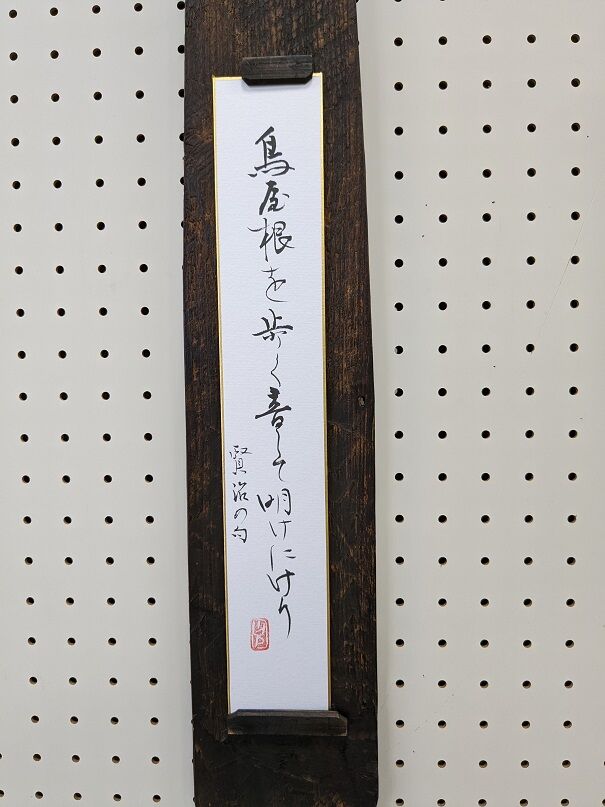 鳥屋根を歩く音して明けにけり
賢治の句